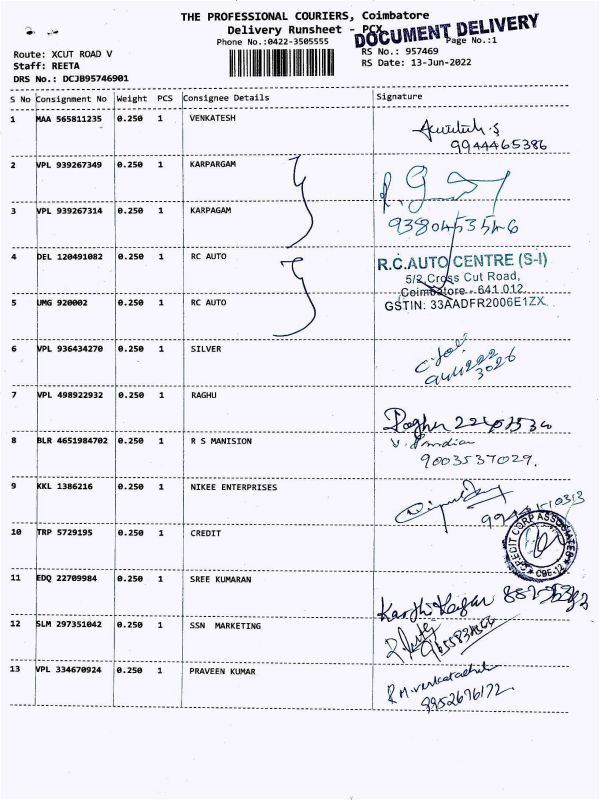 THE PROFESSIONAL COURIERS, Coimbatore
Delivery Runsheet - PCX
DOCUMENT DELIVERY
Phone No.:0422-3505555
Page No.:1
Route: XCUT ROAD V
RS No.: 957469
Staff: REETA
RS Date: 13-Jun-2022
DRS No.: DCJB95746901
S No Consignment No Weight PCS Consignee Details Signature
1 MAA 565811235 0.250 1 VENKATESH
9944465386
2 VPL 939267349 0.250 1 KARPARGAM
3 VPL 939267314 0.250 1 KARPAGAM
4 DEL 120491082 0.250 1 RC AUTO
R.C.AUTO CENTRE (S-I)
5/2 Cross Cut Road,
Coimbatore - 641 012.
GSTIN: 33AADFR2006E1ZX
5 UMG 920002 0.250 1 RC AUTO
6 VPL 936434270 0.250 1 SILVER
7 VPL 498922932 0.250 1 RAGHU
8 BLR 4651984702 0.250 1 R S MANISION
9003537029.
9 KKL 1386216 0.250 1 NIKEE ENTERPRISES
10 TRP 5729195 0.250 1 CREDIT
CREDIT CORP ASSOCIATES
CBE-12
11 EDQ 22709984 0.250 1 SREE KUMARAN
12 SLM 297351042 0.250 1 SSN MARKETING
13 VPL 334670924 0.250 1 PRAVEEN KUMAR
9952676172.